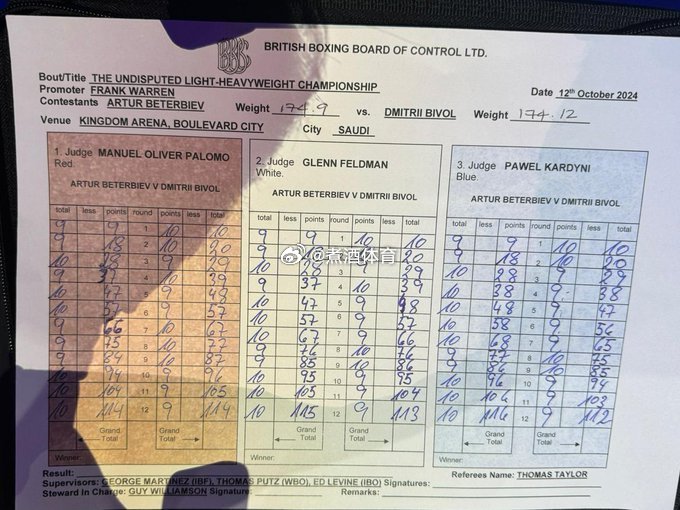 BRITISH BOXING BOARD OF CONTROL LTD.
Bout/Title THE UNDISPUTED LIGHT-HEAVYWEIGHT CHAMPIONSHIP
Promoter FRANK WARREN Date 12th October 2024
Contestants ARTUR BETERBIEV Weight 174.9 vs. DMITRII BIVOL Weight 174.12
Venue KINGDOM ARENA, BOULEVARD CITY City SAUDI
1. Judge MANUEL OLIVER PALOMO
Red.
ARTUR BETERBIEV V DMITRII BIVOL
total less points round points less total
9 9 1 10 10
9 18 2 10 20
10 28 3 9 29
9 37 4 10 39
10 47 5 9 48
10 57 6 9 57
9 66 7 10 67
9 75 8 10 77
9 84 9 10 87
10 94 10 9 96
10 104 11 9 105
10 114 12 9 114
Grand Total Grand Total
Winner:
2. Judge GLENN FELDMAN
White.
ARTUR BETERBIEV V DMITRII BIVOL
total less points round points less total
9 9 1 10 10
9 18 2 10 20
10 28 3 9 29
9 37 4 10 39
10 47 5 9 48
10 57 6 9 57
10 67 7 9 66
9 76 8 10 76
9 85 9 10 86
10 95 10 9 95
10 105 11 9 104
10 115 12 9 113
Grand Total Grand Total
Winner:
3. Judge PAWEL KARDYNI
Blue.
ARTUR BETERBIEV V DMITRII BIVOL
total less points round points less total
9 9 1 10 10
9 18 2 10 20
10 28 3 9 29
10 38 4 9 38
10 48 5 9 47
10 58 6 9 56
10 68 7 9 65
9 77 8 10 75
9 86 9 10 85
10 96 10 9 94
10 106 11 9 103
10 116 12 9 112
Grand Total Grand Total
Winner:
@煮酒体育
Result: Referees Name: THOMAS TAYLOR
Supervisors: GEORGE MARTINEZ (IBF), THOMAS PUTZ (WBO), ED LEVINE (IBO) Signatures:
Steward In Charge: GUY WILLIAMSON Signature: Remarks: